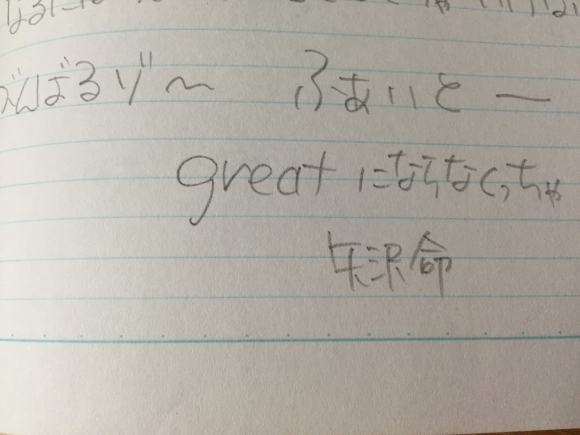 がんばるゾ〜 ふぁいとー
greatにならなくっちゃ
矢沢命